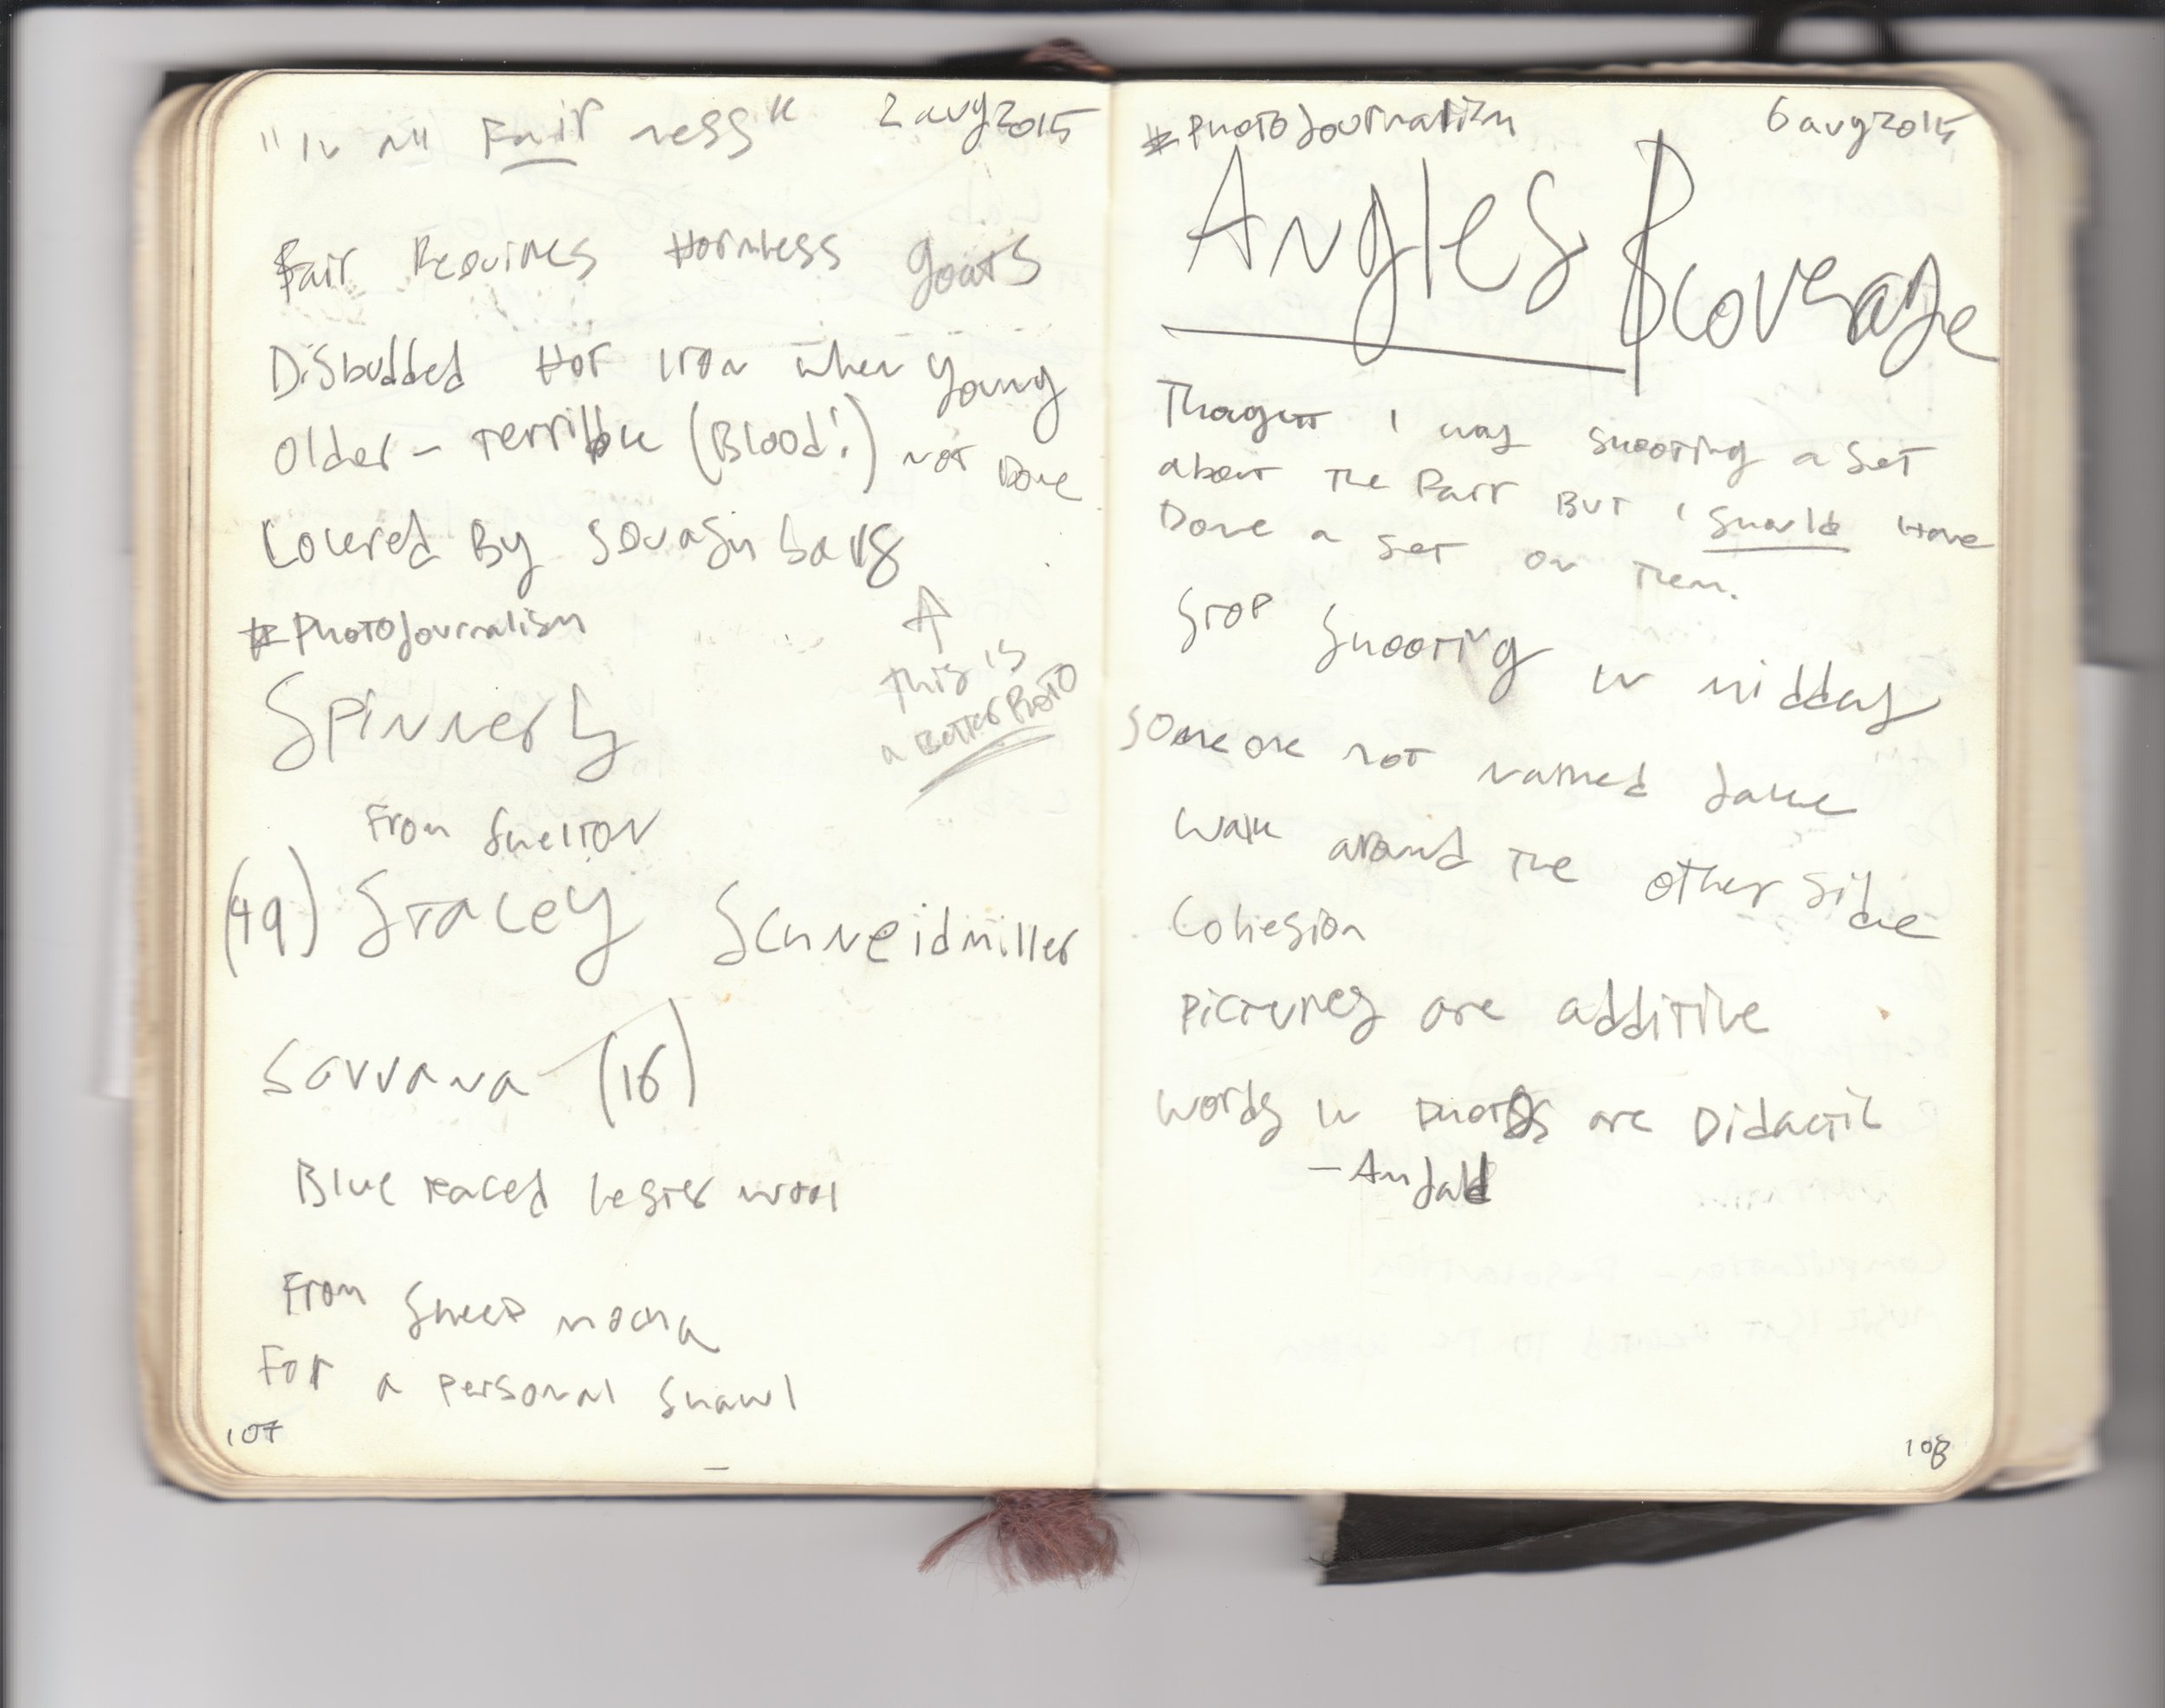 "IN All Fairness" 2 aug 2015
Fair Requires Hornless goats
Disbudded Hot Iron when young
Older - terrible (Blood!) not Done
Covered By squash balls
↑
this is
a Better Photo
#Photojournalism
Spinners
From Shelton
(49) Stacey Schneidmiller
Savvana (16)
Blue Faced Lester wool
From Sheep mocha
For a personal shawl
107
#Photojournalism 6 aug 2015
Angles & Coverage
Thought I was shooting a set
about the Part But I should Have
Done a set on Them.
Stop Shooting in midday
Someone not named Jake
Walk around the other side
Cohesion
Pictures are additive
Words in Photos are Didactic
108